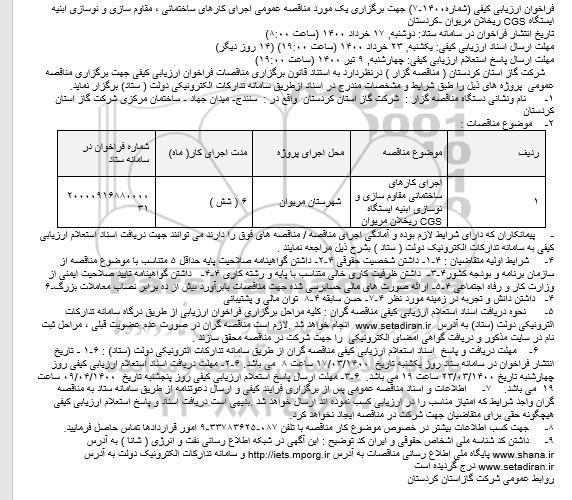 فراخوان ارزیابی کیفی (شماره ۱۴۰۰-۷) جهت برگزاری یک مورد مناقصه عمومی اجرای کارهای ساختمانی ، مقاوم سازی و نوسازی ابنیه
ایستگاه CGS ریخلان مریوان -کردستان
تاریخ انتشار فراخوان در سامانه ستاد: دوشنبه, ۱۷ خرداد ۱۴۰۰ (ساعت ۸:۰۰)
مهلت ارسال اسناد ارزیابی کیفی: یکشنبه, ۲۳ خرداد ۱۴۰۰ (ساعت ۱۹:۰۰) (۱۴ روز دیگر)
مهلت ارسال پاسخ استعلام ارزیابی کیفی: چهارشنبه, ۹ تیر ۱۴۰۰ (ساعت ۱۹:۰۰)
شرکت گاز استان کردستان ( مناقصه گزار ) درنظردارد به استناد قانون برگزاری مناقصات فراخوان ارزیابی کیفی جهت برگزاری مناقصه
عمومی پروژه های ذیل را طبق شرایط و مشخصات مندرج در اسناد ازطریق سامانه تدارکات الکترونیکی دولت ( ستاد ) برگزار نماید.
۱- نام ونشانی دستگاه مناقصه گزار : شرکت گاز استان کردستان واقع در : سنندج- میدان جهاد - ساختمان مرکزی شرکت گاز استان
کردستان
۲- موضوع مناقصات :
ردیف موضوع مناقصه محل اجرای پروژه مدت اجرای کار( ماه) شماره فراخوان در سامانه ستاد
۱ اجرای کارهای ساختمانی مقاوم سازی و نوسازی ابنیه ایستگاه CGS ریخلان مریوان شهرستان مریوان ۶ ( شش ) ۲۰۰۰۰۹۱۶۸۸۰۰۰۰۳۱
- پیمانکاران که دارای شرایط لازم بوده و آمادگی اجرای مناقصه / مناقصه های فوق را دارند می توانند جهت دریافت اسناد استعلام ارزیابی
کیفی به سامانه تدارکات الکترونیک دولت ( ستاد ) بشرح ذیل مراجعه نمایند .
۴- شرایط اولیه متقاضیان : ۴-۱- داشتن شخصیت حقوقی ۴-۲- داشتن گواهینامه صلاحیت پایه حداقل ۵ متناسب با موضوع مناقصه از
سازمان برنامه و بودجه کشور۴-۳- داشتن ظرفیت کاری خالی متناسب با پایه و رشته کاری ۴-۴- داشتن گواهینامه تایید صلاحیت ایمنی از
وزارت کار و رفاه اجتماعی ۴-۵- ارائه صورت های مالی حسابرسی شده جهت مناقصات بابرآورد بیش از ده برابر نصاب معاملات بزرگ۴-۶
داشتن دانش و تجربه در زمینه مورد نظر ۴-۷- حسن سابقه ۴-۸ توان مالی و پشتیبانی
۵- نحوه دریافت اسناد استعلام ارزیابی کیفی مناقصه گران : کلیه مراحل برگزاری فراخوان ارزیابی از طریق درگاه سامانه تدارکات
الکترونیکی دولت (ستاد) به آدرس www.setadiran.ir انجام خواهد شد .لازم است مناقصه گران در صورت عدم عضویت قبلی ، مراحل ثبت
نام در سایت مذکور و دریافت گواهی امضای الکترونیکی را جهت شرکت در مناقصه محقق سازند
۶- مهلت دریافت و پاسخ استعلام ارزیابی کیفی مناقصه گران از طریق سامانه تدارکات الکترونیکی دولت (ستاد) : ۶-۱ - تاریخ
انتشار فراخوان در سامانه ستاد روز یکشنبه تاریخ ۱۷/۰۳/۱۴۰۰ ساعت ۸ می باشد .۶-۲- مهلت دریافت اسناد استعلام ارزیابی کیفی روز
چهارشنبه تاریخ ۲۳/۰۳/۱۴۰۰ ساعت ۱۹ می باشد . ۶-۳- مهلت ارسال پاسخ استعلام ارزیابی کیفی روز پنجشنبه تاریخ ۰۹/۰۴/۱۴۰۰ ساعت
۱۹ می باشد. ۷- اطلاعات و اسناد مناقصه عمومی پس از برگزاری فرایند کیفی و ارسال دعوتنامه از طریق سامانه ستاد به مناقصه
گران واجد شرایط که امتیاز مناسب را در ارزیابی کسب نموده اند ارسال خواهد شد .بدیهی است دریافت اسناد و پاسخ استعلام ارزیابی کیفی
هیچگونه حقی برای متقاضیان جهت شرکت در مناقصه ایجاد نخواهد کرد.
۸- جهت کسب اطلاعات بیشتر در خصوص موضوع کار مناقصه با تلفن ۰۸۷-۳۳۷۸۳۶۲۵-۹ امور قراردادها تماس حاصل فرمایید.
۹- داشتن کد شناسه ملی اشخاص حقوقی و ایران کد توضیح : این آگهی در شبکه اطلاع رسانی نفت و انرژی ( شانا ) به آدرس
www.shana.ir پایگاه ملی اطلاع رسانی مناقصات به آدرس http://iets.mporg.ir و سامانه تدارکات الکترونیک دولت به آدرس
www.setadiran.ir درج گردیده است
روابط عمومی شرکت گازاستان کردستان